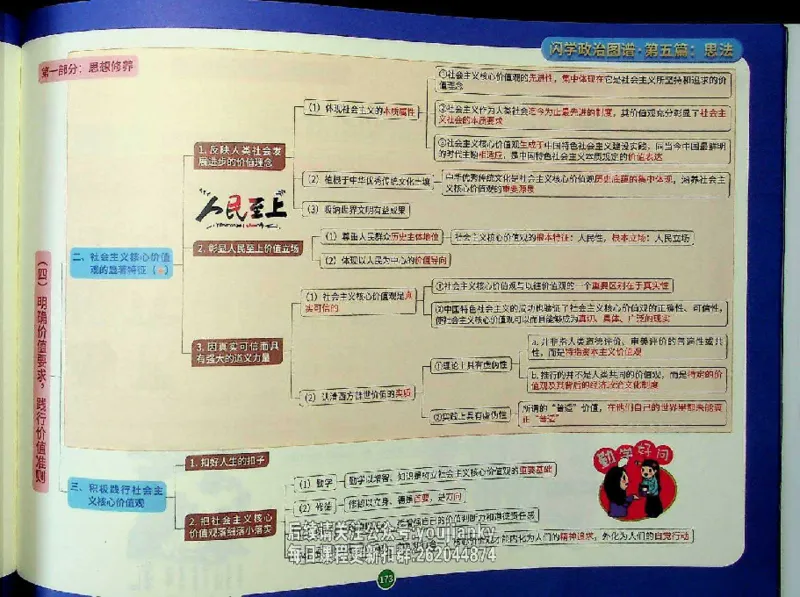 闪学政治图谱·第五篇：思法
第一部分：思想修养
（四）明确价值要求，践行价值准则
二、社会主义核心价值
观的显著特征（
1. 反映人类社会发
展进步的价值理念
（1）体现社会主义的本质属性
①社会主义核心价值观的先进性，集中体现在它是社会主义所坚持和追求的价
值理念
②社会主义作为人类社会迄今为止最先进的制度，其价值观充分彰显了社会主
义社会的本质要求
③社会主义核心价值观生成于中国特色社会主义建设实践，同当今中国最鲜明
的时代主题相适应，是中国特色社会主义本质规定的价值表达
（2）植根于中华优秀传统文化土壤
中华优秀传统文化是社会主义核心价值观历史底蕴的集中体现，涵养社会主
义核心价值观的重要源泉
（3）吸纳世界文明有益成果
人民至上
2. 彰显人民至上价值立场
（1）尊重人民群众历史主体地位
社会主义核心价值观的根本特征：人民性，根本立场：人民立场
（2）体现以人民为中心的价值导向
3. 因真实可信而具
有强大的道义力量
（1）社会主义核心价值观是真
实可信的
①社会主义核心价值观与以往价值观的一个重要区别在于真实性
②中国特色社会主义的成功也验证了社会主义核心价值观的正确性、可信性，
使社会主义核心价值观可以而且能够成为真切、具体、广泛的现实
（2）认清西方普世价值的实质
①理论上具有虚伪性
a. 并非指人类道德评价、审美评价的普遍性或共
性，而是特指资本主义价值观
b. 推行的并不是人类共同的价值观，而是特定的价
值观及其背后的经济政治文化制度
②实践上具有虚伪性
所谓的“普适”价值，在他们自己的世界里都未能真
正“普适”
三、积极践行社会主
义核心价值观
1. 扣好人生的扣子
2. 把社会主义核心
价值观落细落小落实
（1）勤学
勤学以增智，知识是树立社会主义核心价值观的重要基础
（2）修德
修德以立身，德是首要，是方向
自己的价值判断力和道德责任感
才能内化为人们的精神追求，外化为人们的自觉行动
勤学好问
后续请关注公众号:youjianky
每日课程更新社群:262044874
173